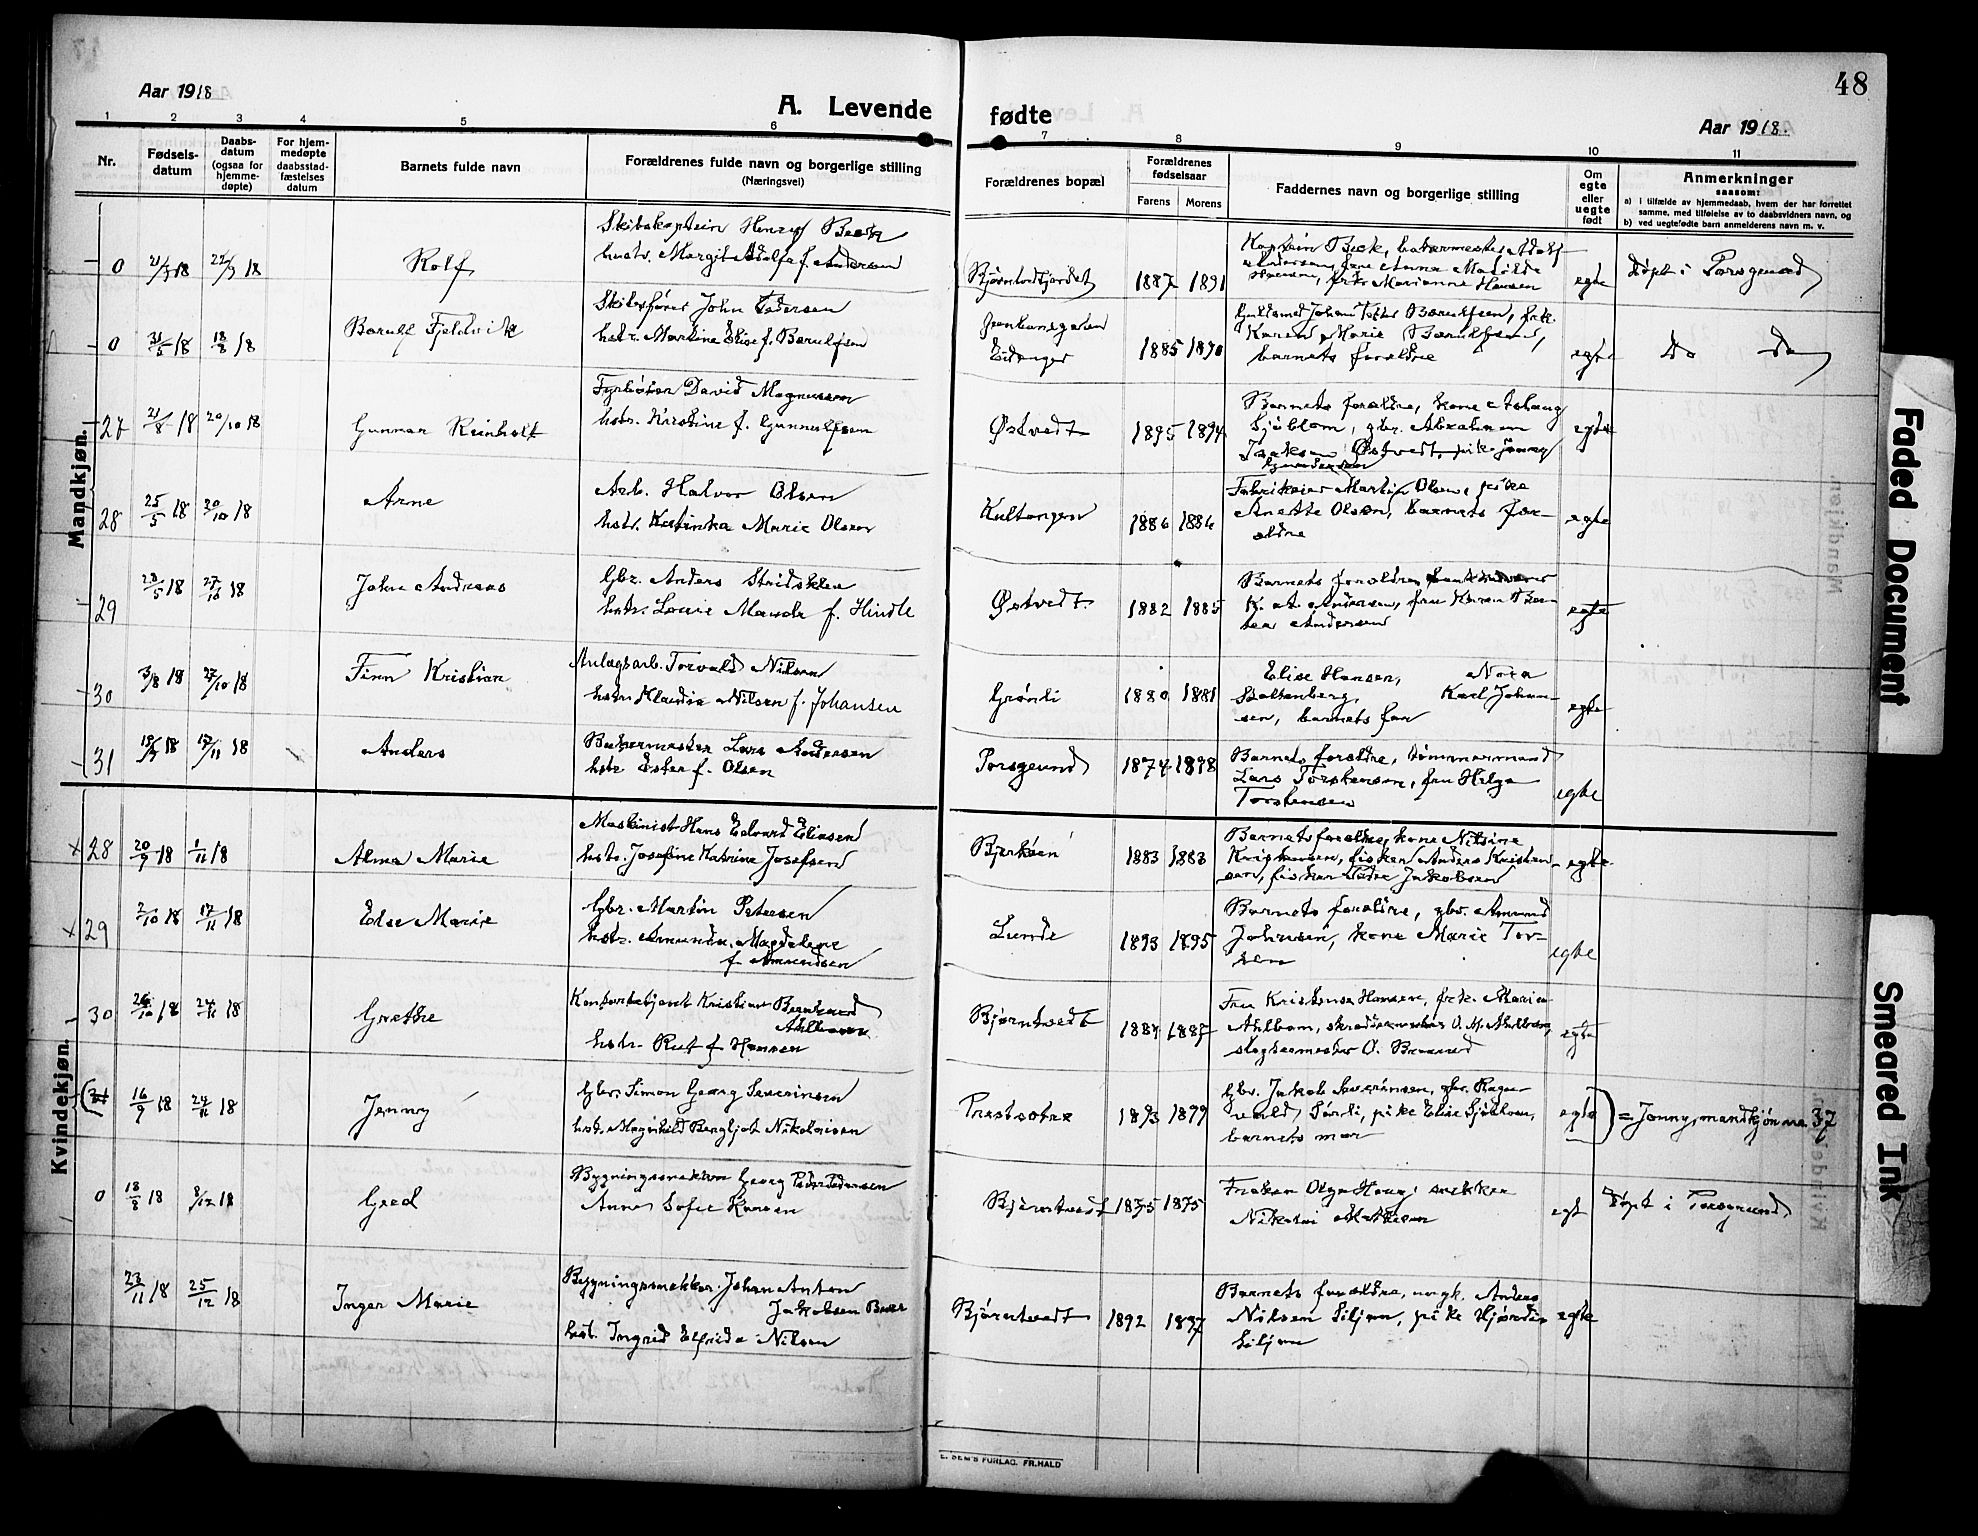 48
Aar 1918
A. Levende fødte
Aar 1918.
1 2 3 4 5 6 7 8 9 10 11
Nr.
Fødsels-
datum
Daabs-
datum
(ogsaa for
hjemme-
døpte)
For hjem-
medøpte
daabsstad-
fæstelses
datum
Barnets fulde navn
Forældrenes fulde navn og borgerlige stilling
(Næringsvei)
Forældrenes bopæl
Forældrenes
fødselsaar
Farens Morens
Faddernes navn og borgerlige stilling
Om
egte
eller
uegte
født
Anmerkninger
saasom:
a) i tilfælde av hjemmedaab, hvem der har forrettet
samme, med tilføielse av to daabsvidners navn, og
b) ved uegtefødte barn anmelderens navn m. v.
Mandkjøn.
0 Rolf
Skibskaptein Henry Beck
hustr. Margit Adolfa f. Andersen
1887 1891
Kaptein Beck,
egte
Døpt i Porsgrund
0 31/5 18 18/8 18
Barulf Fjeldvik
Skibsfører John Pedersen
hstr. Martine Elise f. Barulfsen
Eidanger
1885 1890
Karen Marie Barulfsen,
barnets forældre
egte
Do Do
27 21/8 18 20/10 18
Gunnar Reinholt
Fyrbøter David Magnussen
hstr. Kirstine f. Gunnulfsen
Østvedt
1895 1894
Barnets forældre, kone Aslaug
Sjøblom, gbr. Abraham
Isaksen Østvedt, pike Jenny
Gundersen
egte
28 25/5 18 20/10 18
Arne
Arb. Halvor Olsen
hstr. Katinka Marie Olsen
Kultangen
1886 1886
Fabrikeier Martin Olsen, pike
Anette Olsen, barnets for-
ældre
egte
29 23/5 18 27/10 18
John Andreas
Gbr. Anders Stridsklev
hstr. Lovise Maude f. Hindle
Østvedt
1882 1885
Barnets forældre,
K. A. Andersen, fru Karen Thea-
Andersen
egte
30 3/8 18 27/10 18
Finn Kristian
Anlægsarb. Torvald Nilsen
hstr. Klaudia Nilsen f. Johansen
Grøndi
1880 1881
Elise Hansen, Nora
Stoltenberg, Karl Johan-
sen, barnets far
egte
31 17/11 18
Anders
Bakermester Lars Andersen
hstr Ester f. Olsen
Porsgrund
1874 1898
Barnets forældre, tømmermand
Lars Torstensen, fru Helga
Torstensen
egte
Kvindekjøn.
28 20/9 18 1/11 18
Alma Marie
Maskinist Hans Edvard Eliasen
hstr. Josefine Katrine Josefsen
Bjerkøen
1883 1883
Barnets forældre, kone Nilsine
Kristensen, fisker Anders Kristen-
sen, fisker Peder Jakobsen
egte
29 2/10 18 17/11 18
Else Marie
Gbr. Martin Petersen
hstr. Amunda Magdalene
f. Amundsen
Lunde
1893 1895
Barnets forældre, gbr. Amund
Johnsen, kone Marie Tor-
sen
egte
30 26/10 18 24/11 18
Grethe
Kontorbetjent Kristian Bernhard
Ahlbom
hstr. Rut f. Hansen
Bjørntvedt
1884 1887
Fru Kristense Hansen, frk. Marie
Ahlbom, skræddermester O. M. Ahlbom,
slagtermester O. Braarud
egte
(31 16/9 18 24/11 18
Jenny
Gbr. Simon Georg Severinsen
hstr. Magnhild Bergljot Nikolaisen
Prestealna
1893 1899
Gbr. Jakob Severinsen, gbr. Ragn-
vald Sørdi, pike Elise Sjøthun,
barnets mor
egte
) = Jonny, mandkjøn nr. 37
0 18/8 18 8/12 18
Gerd
Bygningssnekker Georg Peder Pedersen
Anna Sofie Karsen
Bjørntvedt
1875 1875
Frøken Olga Haug, snekker
Nikolai Mathisen
egt
Døpt i Porsgrund
23/11 18 25/12 18
Inger Marie
Bygningssnekker Johan Anton
Jakobsen Berr
hst. Ingrid Elfrida Nilsen
Bjørntvedt
1892 1897
Barnets forældre, ungk. Anders
Nilsen Siljan, pike Hjørdis
Siljan
egte
E. SEM'S FORLAG. FR.HALD
Faded Document
Smeared Ink